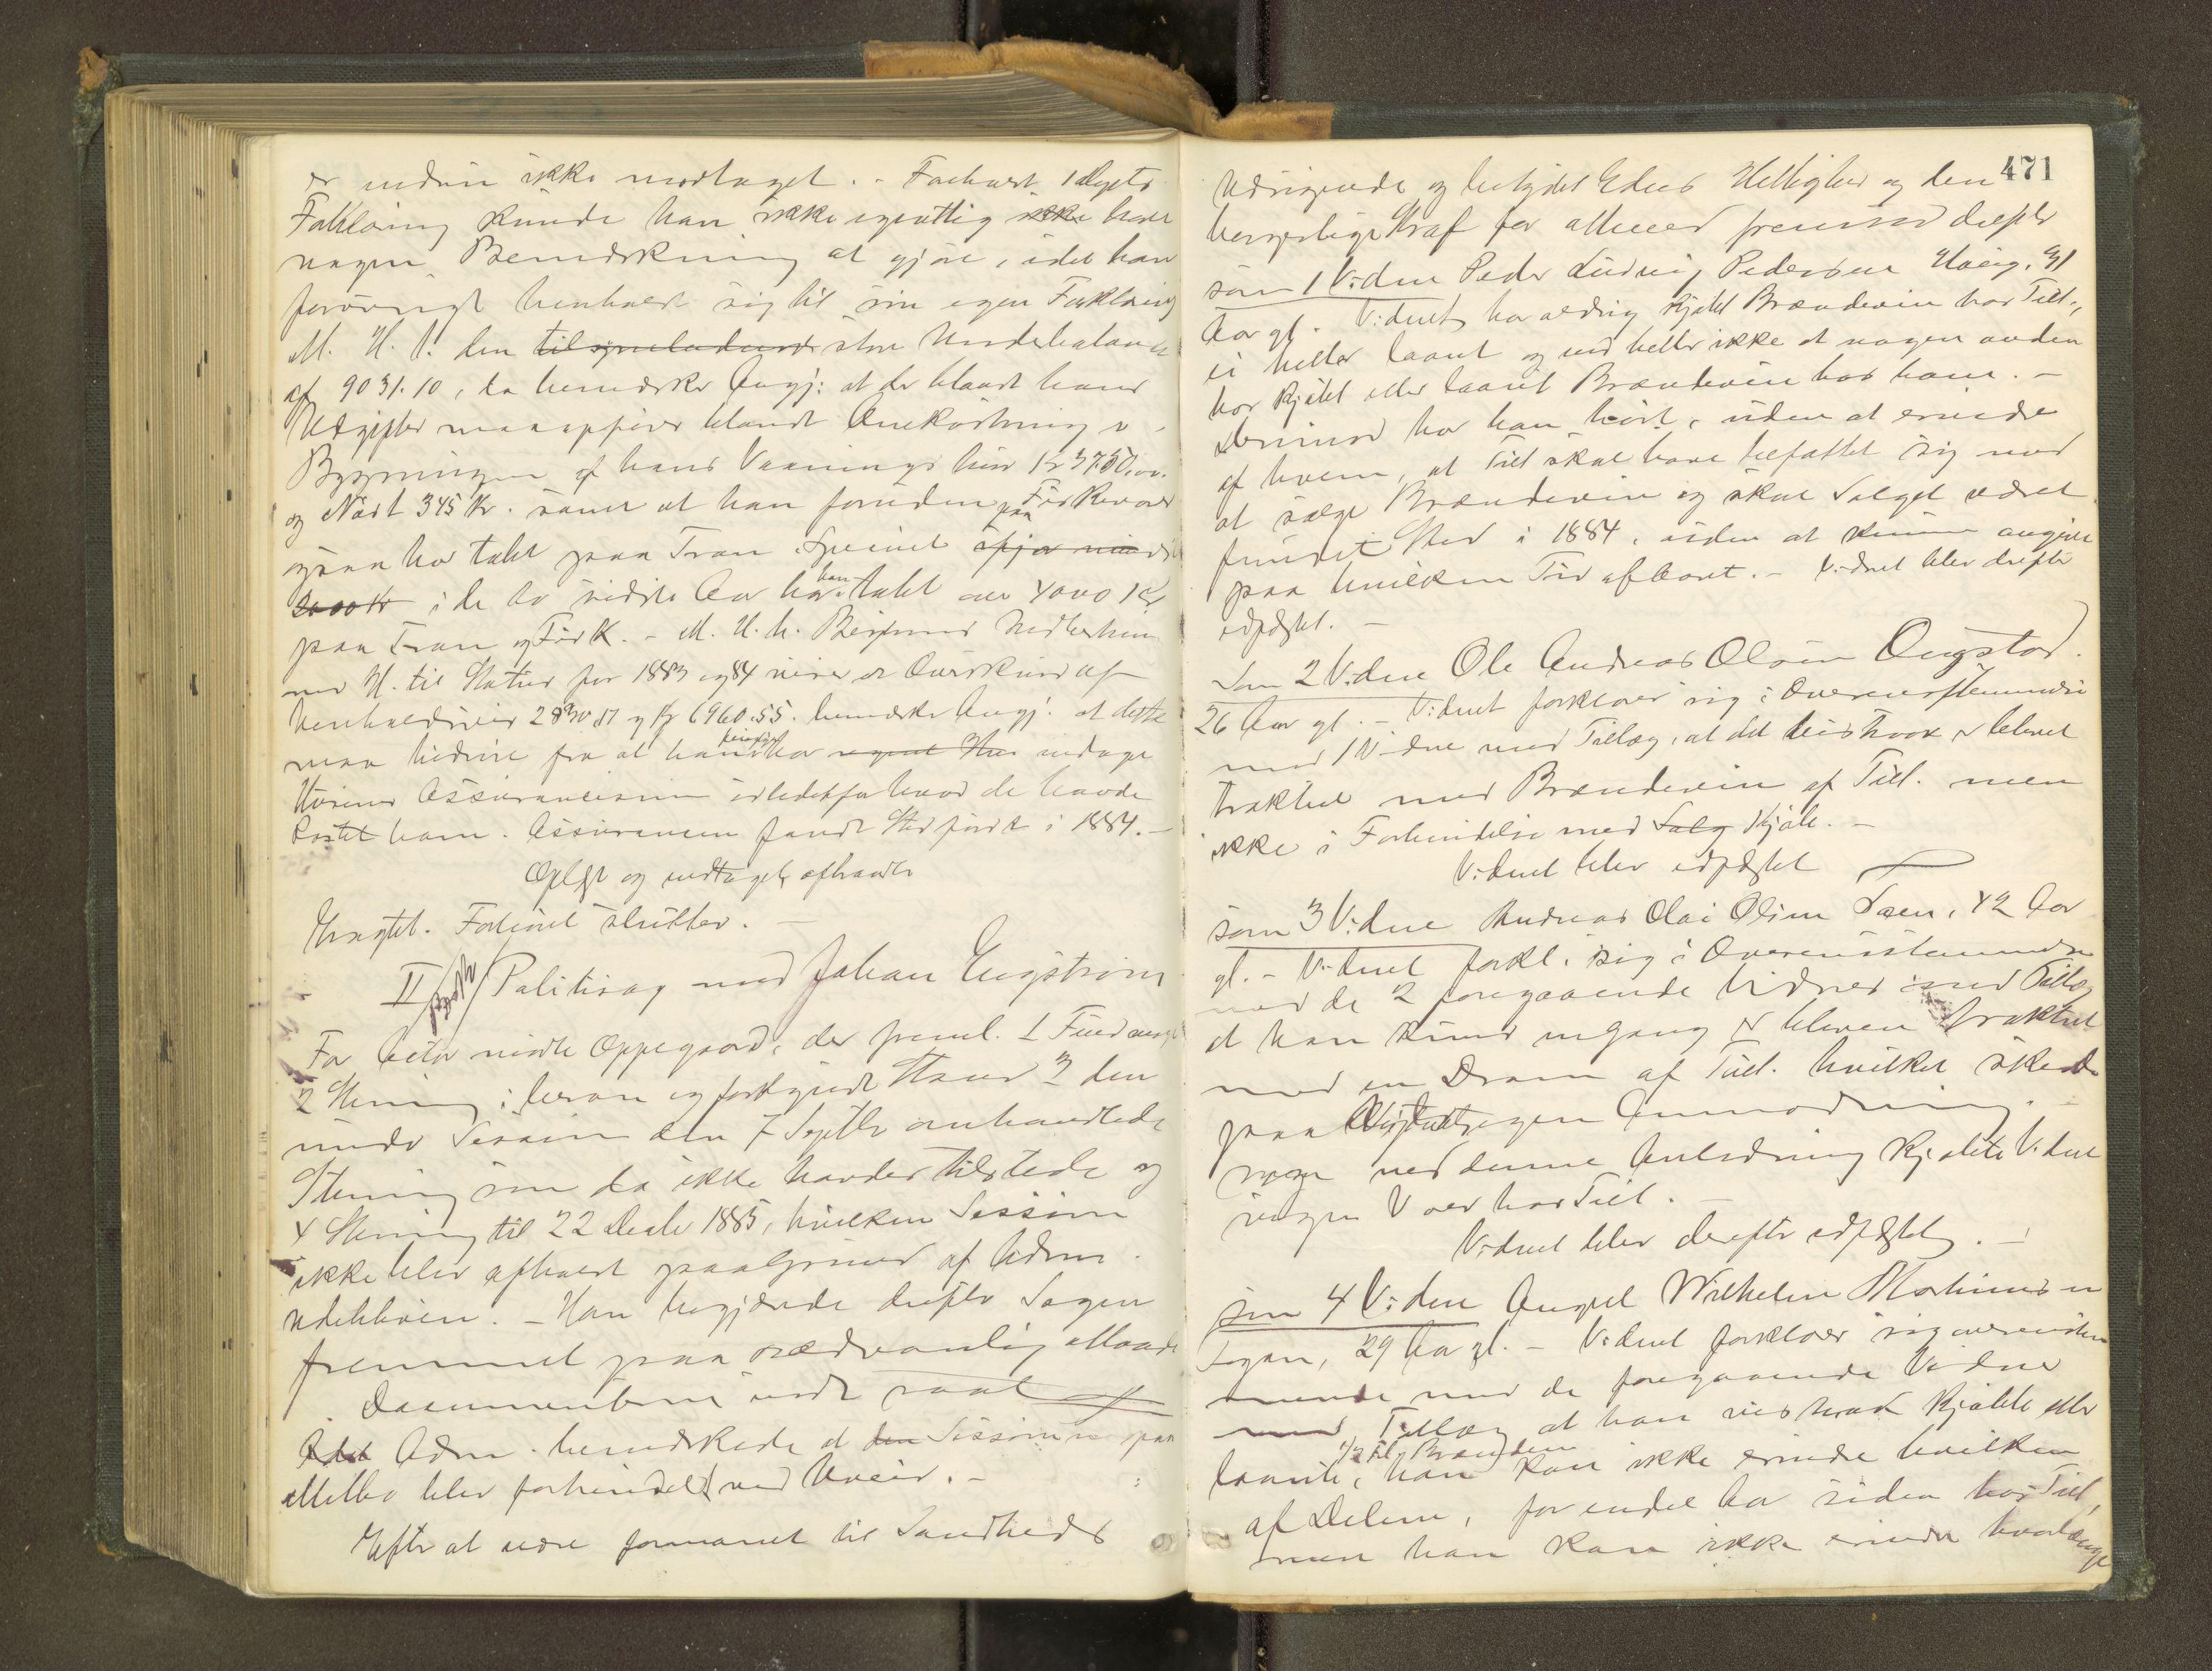 er endnu ikke modtaget. - Forhørt. 1 Depts
Forklaring kunde han ikke egentlig ikke have
nogen Bemærkning at gjøre, idet han
forøvrigt henholdt sig til sin egen Forklaring
M. H. t. den store Underbalance
af 9031.10, da bemærker Angj: at der blandt hans
Udgifter maa opføres blandt
Bygningen af hans Vaaningshus Kr 3750.00.
og Nøst 345 Kr. samt at han foruden paa Fiskevarer
ogsaa har tabt paa Tran
2000 Kr i de to sidste Aar har han tabt over 4000 Kr
paa Tran og Fisk. - M. H. t.
m H. til Status for 1883 og 84 viser et Overskud af
henholdsvis 2830.87 og Kr 6960.55. bemærker Angj. at dette
maa hidrøre fra at han har indtaget
Husenes Assurancesum istedetfor hvad de havde
kostet ham. Assurancen fandt Sted først i 1884. -
Oplæst og vedtaget, afhandlet
Fragtet. Forhøret slutter. -
II Politisag mod Johan Engstrøm
For Actor mødte Oppegaard, der freml. 1
2 Stevning i Sessionen den 7 Septbr
Stevning som da ikke havdes tilstede og
4 Stevning til 22 Decbr 1885, hvilken Session
ikke blev afholdt paa Grund af Adm.
udeblivelse. - Han begjærede derefter Sagen
fremmet paa sædvanlig Maade
Documenterne
Adm. bemærkede at den Session paa
Melbo blev forhindret ved Uveir. -
Efter at være formanet til Sandheds
471
Udsigende og betydet Edens Hellighed og den
borgerlige Straf for Mened fremstod derefter
som 1 Vidne Peder Ludvig Pedersen 31
Aar gl. Vidnet har aldrig kjøbt Brændevin hos Tilt.,
ei heller laant og ved heller ikke at nogen anden
har kjøbt eller laant Brændevin hos ham. -
Derimod har han hørt, uden at erindre
af hvem, at Tilt skal have befattet sig med
at sælge Brændevin og skal Salget været
fundet Sted i 1884, uden at kunne angive
paa hvilken Tid af Aaret. - Vidnet blev derefter
edfæstet. -
Som 2 Vidne Ole Andreas Olsen Ougstad.
26 Aar gl. - Vidnet forklarer sig i Overensstemmelse
med 1 Vidne med Tillæg, at det er blevet
trakteret med Brændevin af Tilt. men
ikke i Forbindelse med Salg Kjøb. -
Vidnet blev edfæstet
som 3 Vidne Andreas Olai Olsen 42 Aar
gl. - Vidnet forkl. sig i Overensstemmelse
med de 2 foregaaende Vidner med Tillæg
at han kuns engang er bleven trakteret
med en Dram af Tilt. hvilket skede
paa Vidnets egen Anmodning. -
ved denne Anledning kjøbte Vidnet
ingen Varer hos Tilt. -
Vidnet blev derefter edfæstet. -
som 4 Vidne August Wilhelm Martinussen
29 Aar gl. - Vidnet forklarer sig overensstem
mende med de foregaaende Vidner
med Tillæg at han kjøbte eller
1/2 Fl. Brændevin
laante, han kan ikke erindre hvilken
af Delene, for endel Aar siden hos Tilt,
men han kan ikke erindre hvorlænge